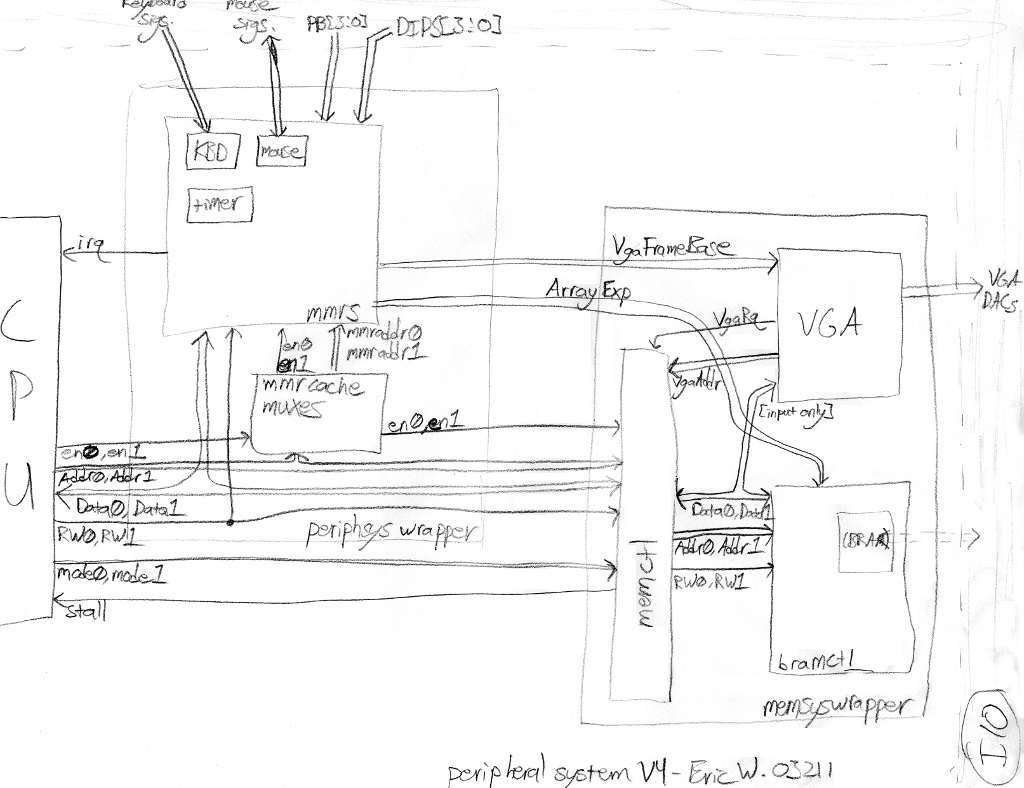 Keyboard
sigs.
mouse
sigs.
PB[3:0]
DIPS[3:0]
KBD
mouse
timer
irq
CPU
mmrs
en0
en1
mmraddr0
mmraddr1
mmrcache
muxes
en0,en1
en0,en1
Addr0,Addr1
Data0,Data1
RW0,RW1
periphsys wrapper
mode0,mode1
stall
VgaFrameBase
ArrayExp
VgaRq
VgaAddr
VGA
VGA
DACs
[input only]
memctl
Data0,Data1
Addr0,Addr1
RW0,RW1
(BRAM)
bramctl
memsyswrapper
I/O
peripheral system V4 - Eric W. 03211